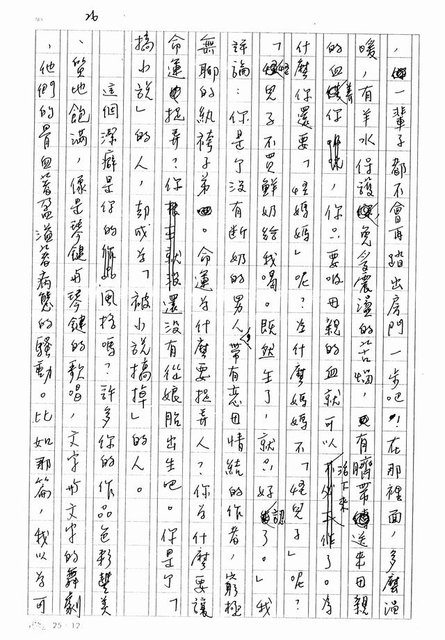 26
，一輩子都不會再踏出房門一步吧！在那裡面，多麼溫
暖，有羊水保護，免受震盪的苦惱，有臍帶送來母親
的血養你，你只要吸母親的血就可以活下來了。為
什麼你還要「怪媽媽」呢？為什麼媽媽不「怪兒子」呢？
「怪兒子不買鮮奶給我喝。既然生了，就只好認了。」我
評論：你是個沒有斷奶的男人，帶有戀母情結的作者，窮極
無聊的紈袴子弟。命運為什麼要捉弄人？你為什麼要讓
命運捉弄？你還沒有從娘胎出生吧。你是個「
搞小說」的人，却成為「被小說搞掉」的人。
這個潔癖是你的風格嗎？許多你的作品色彩豐美
、質地飽滿，像是琴鍵與琴鍵的歌唱，文字與文字的舞劇
，他們的骨血蓄盈滿著病態的騷動。比如那篇，我以為可
25 12